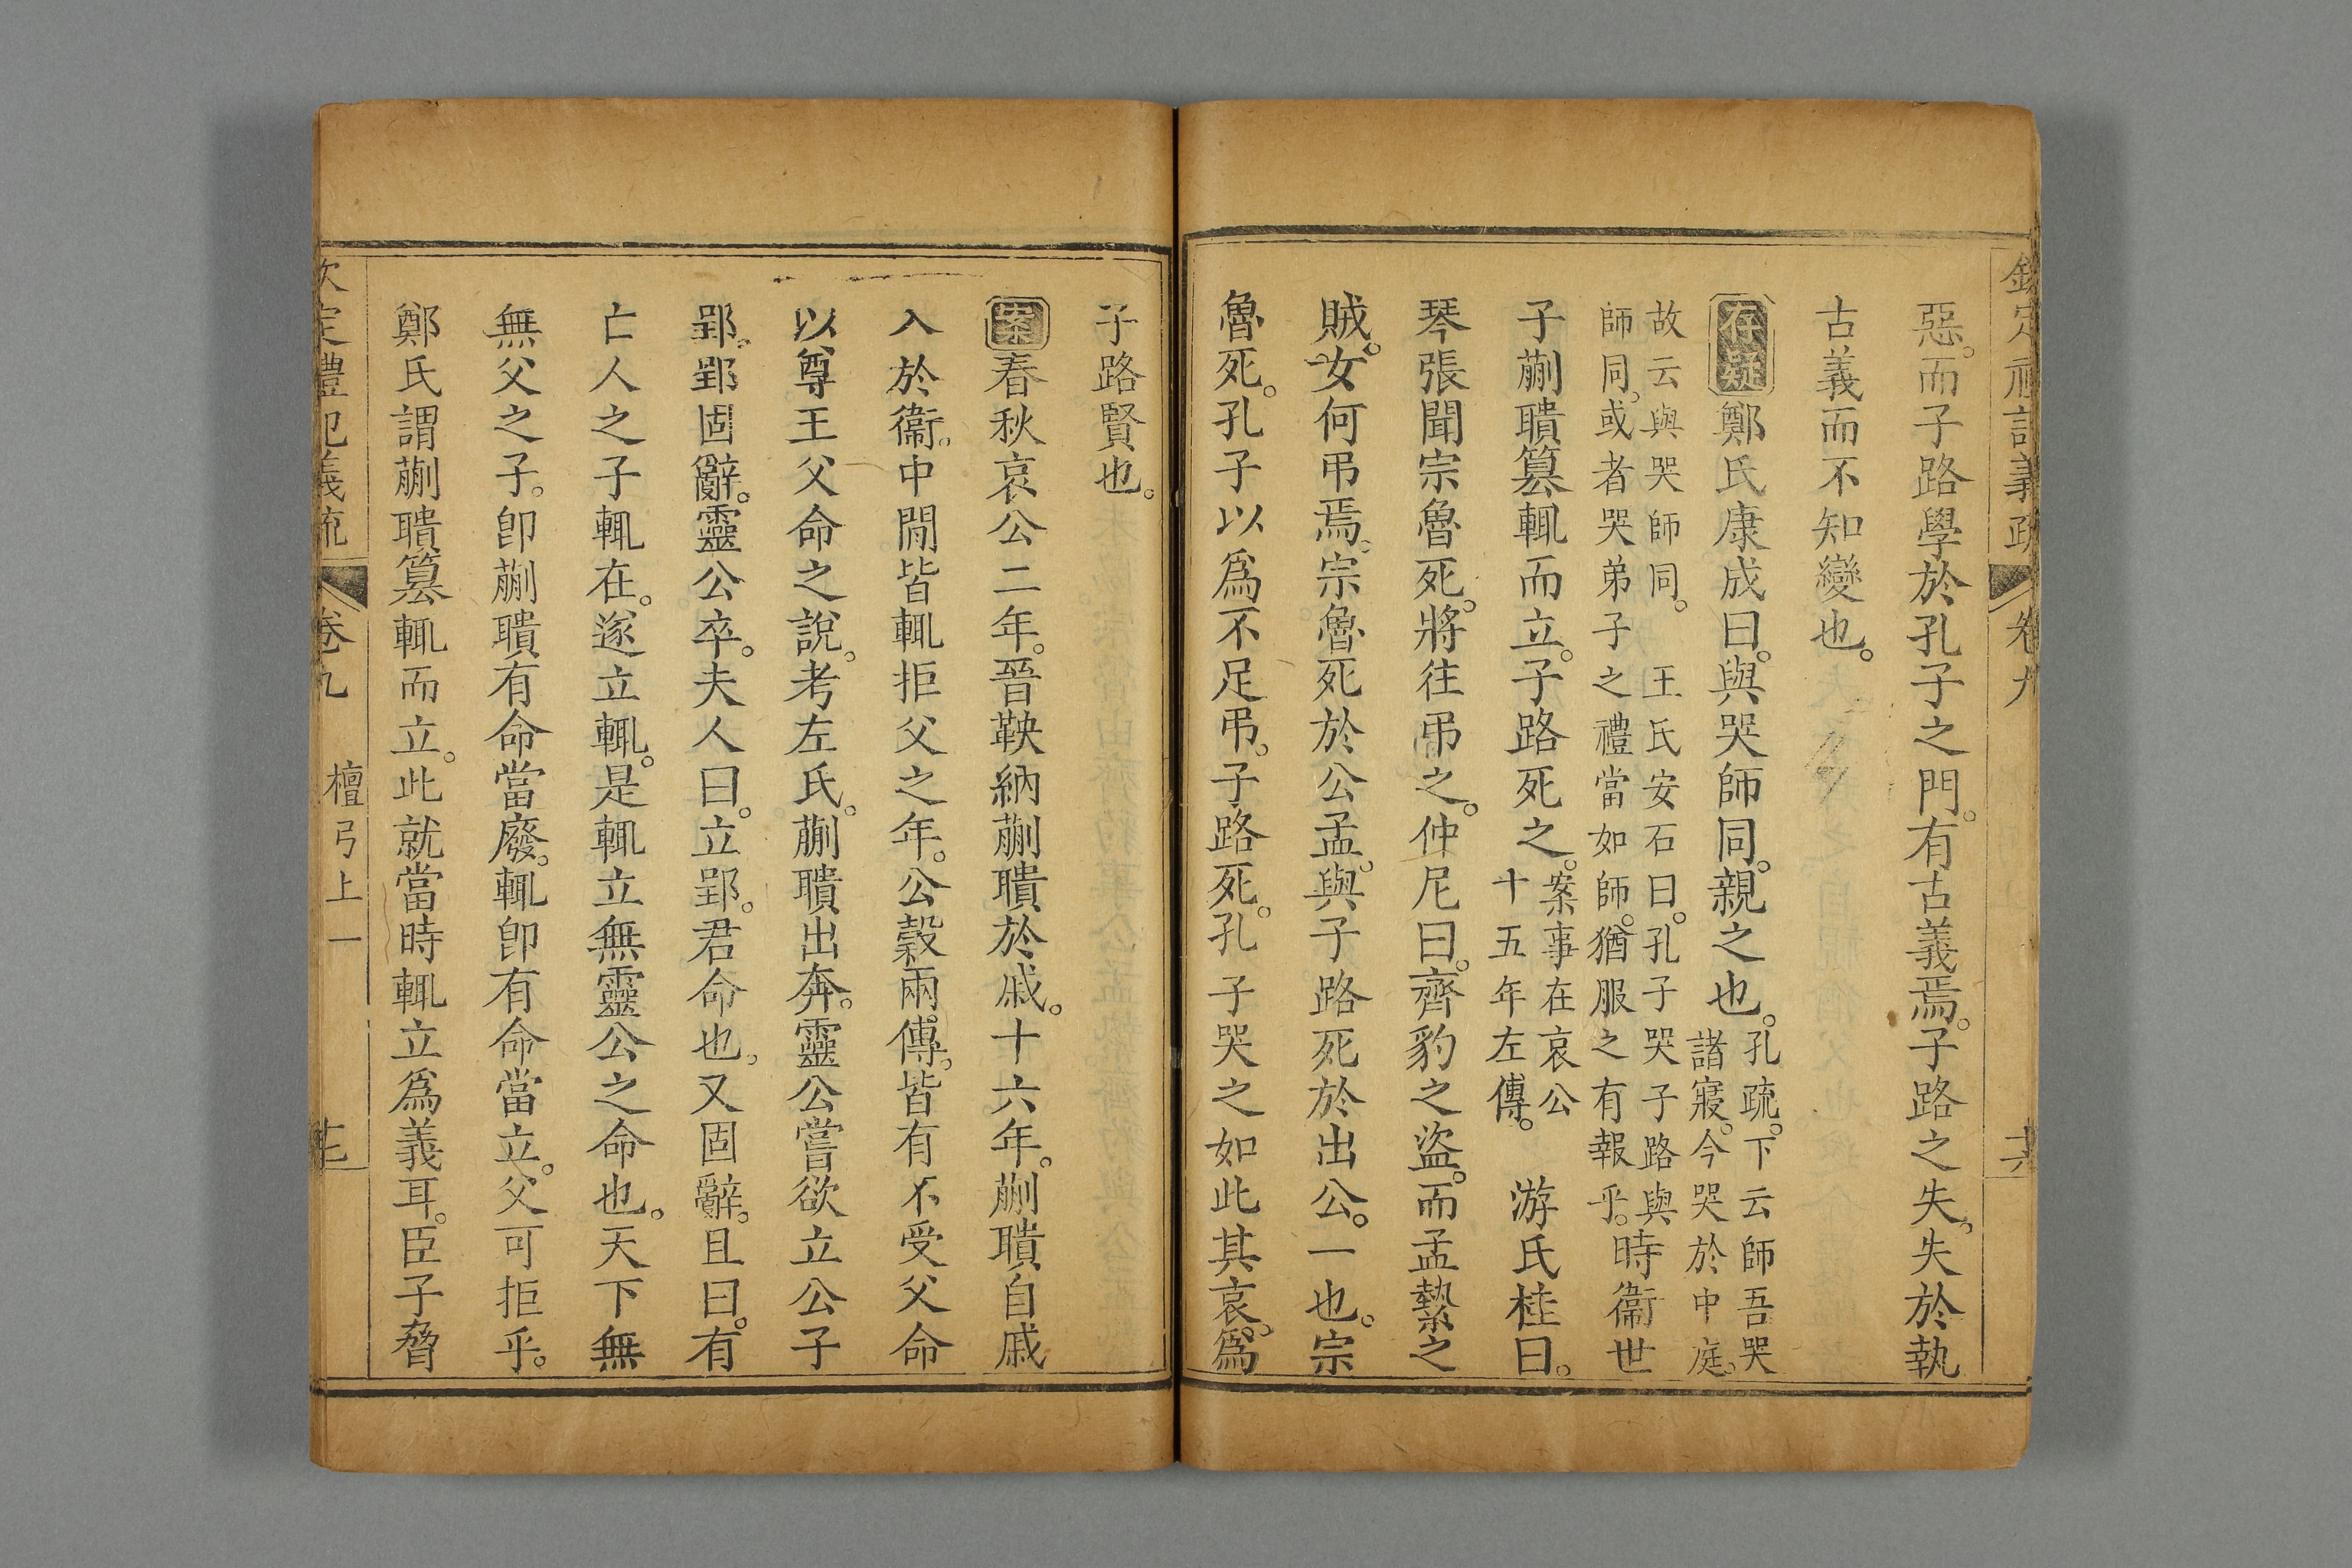 欽定禮記義疏 卷九 十六
惡。而子路學於孔子之門。有古義焉。子路之失。失於執
古義而不知變也。
存疑鄭氏康成曰。與哭師同。親之也。孔疏。下云師吾哭諸寢。今哭於中庭。
故云與哭師同。 王氏安石曰。孔子哭子路與師同。或者哭弟子之禮當如師。猶服之有報乎。時衞世
子蒯聵篡輒而立。子路死之。案事在哀公十五年左傳。 游氏桂曰。
琴張聞宗魯死。將往弔之。仲尼曰。齊豹之盜。而孟縶之
賊。女何弔焉。宗魯死於公孟。與子路死於出公。一也。宗
魯死。孔子以爲不足弔。子路死。孔子哭之如此其哀。爲
子路賢也。
案春秋哀公二年。晉鞅納蒯聵於戚。十六年。蒯聵自戚
入於衞。中閒皆輒拒父之年。公穀兩傳。皆有不受父命
以尊王父命之說。考左氏。蒯聵出奔。靈公嘗欲立公子
郢。郢固辭。靈公卒。夫人曰。立郢。君命也。又固辭。且曰。有
亡人之子輒在。遂立輒。是輒立無靈公之命也。天下無
無父之子。卽蒯聵有命當廢。輒卽有命當立。父可拒乎。
鄭氏謂蒯聵篡輒而立。此就當時輒立爲義耳。臣子脅
欽定禮記義疏 卷九 檀弓上一 十七